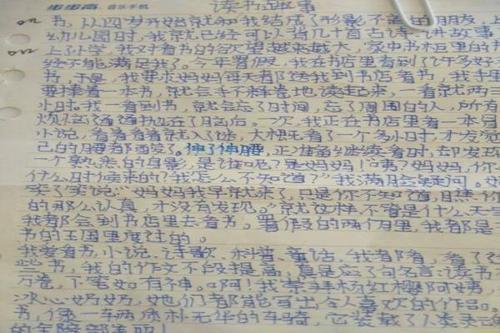 步步高 音乐手机
读书故事
书,从四岁开始就和我结成了形影不离的朋友
幼儿园时,我就已经可以背几十首古诗,讲故事
上了小学,我对看书的欲望越来越大,家中书柜里的
经不能满足我了。今年暑假,我在书店里看到了许多好
书,于是,我要求妈妈每天都送我到书店看书,我手
要捧着一本书,就会手不释卷地读起来,一看就两
小时。我一看到书,就会忘了时间,忘了周围的人,所有
烦恼通通抛在了脑后。一次,我正在书店里看一本
小说,看着看着就入了迷,大概看了一个多小时,才发
己的腰都酸了。伸伸腰,正准备继续看时,却发现
一个熟悉的身影,是谁呢?是妈妈!"妈妈,你
什么时候来的?我怎么不知道?"我满脸疑问。
笑了笑说:"妈妈我早就来了,只是你不知道,
的那么认真,才没有发现。"就这样,不管是什么天
我都会到书店里去看书。暑假的两个月里,我都是
书的王国里度过的。
我爱看书,小说、诗歌、童话,我都看,看了
书,我的作文不断提高,真是忘了句名言:读书
万卷,下笔如有神。啊!我崇拜杨红樱阿姨
冰心奶奶,她们都能写出令人喜欢的作品。
书,像一车两朴无华的车骑,它装载了人类
的全部